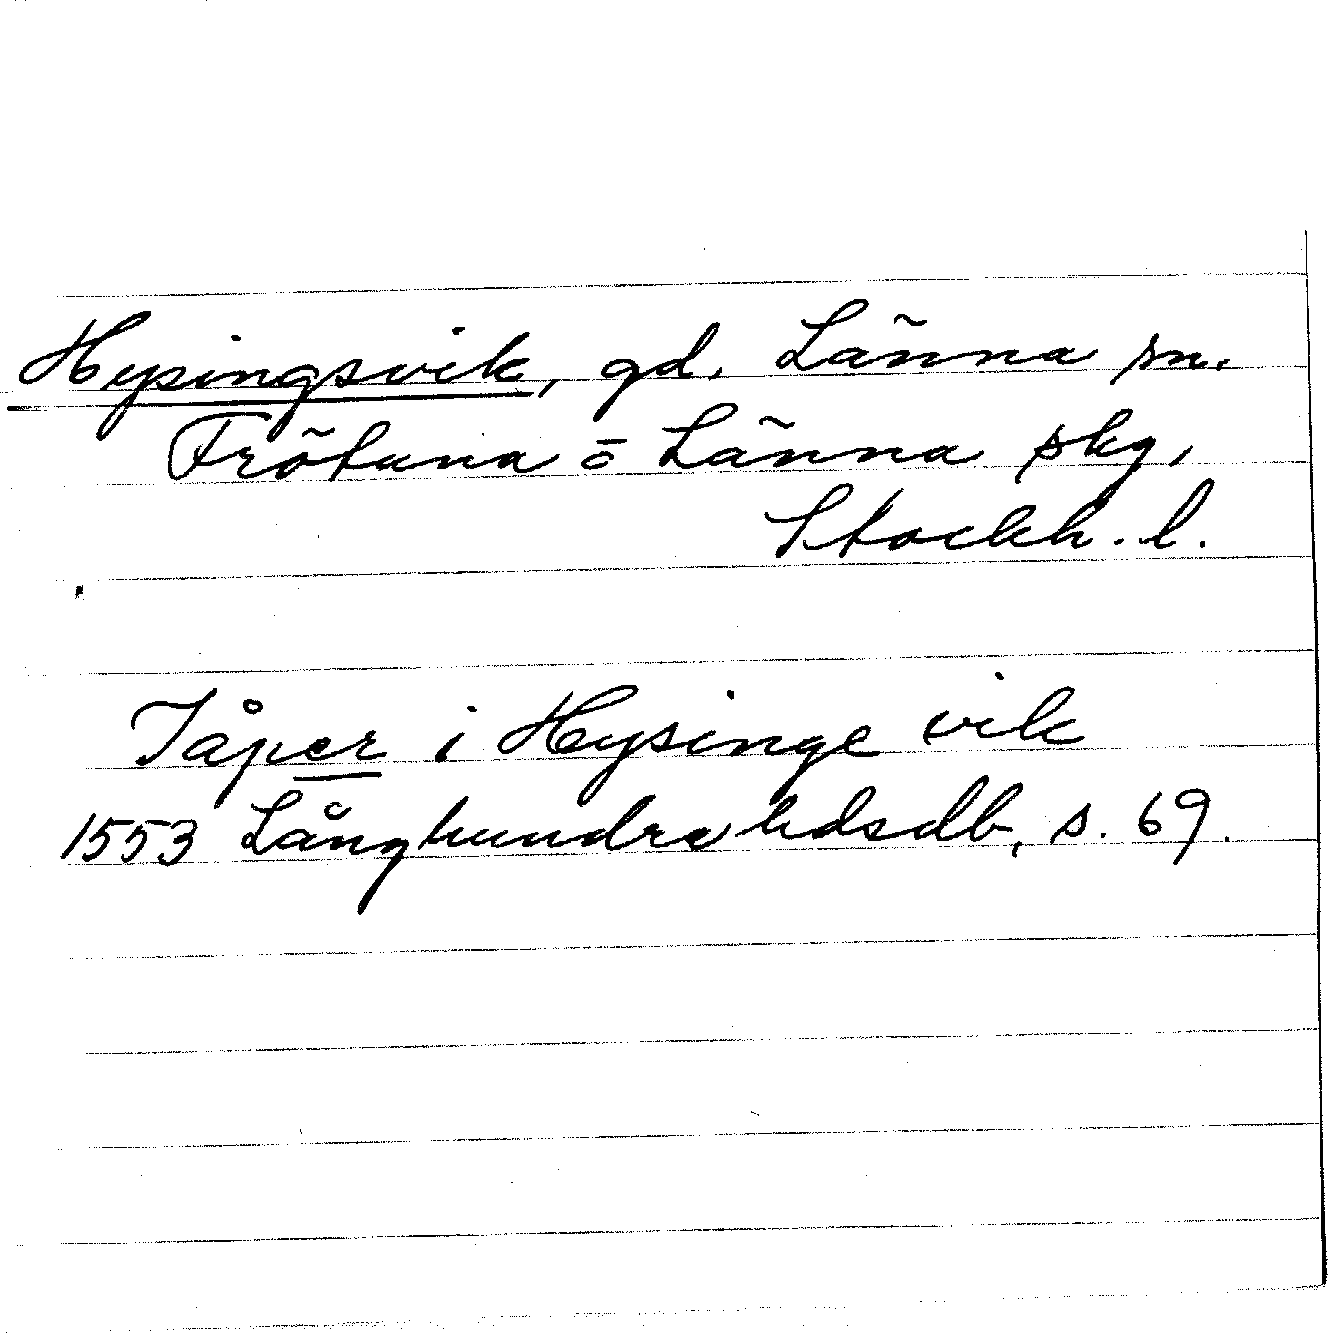 Hysingsvik, gd. Länna sn.
Frötuna o Länna skg,
Stockh. l.
Jåper i Hysinge vik
1553 Långhundra hdsdb, s. 69.